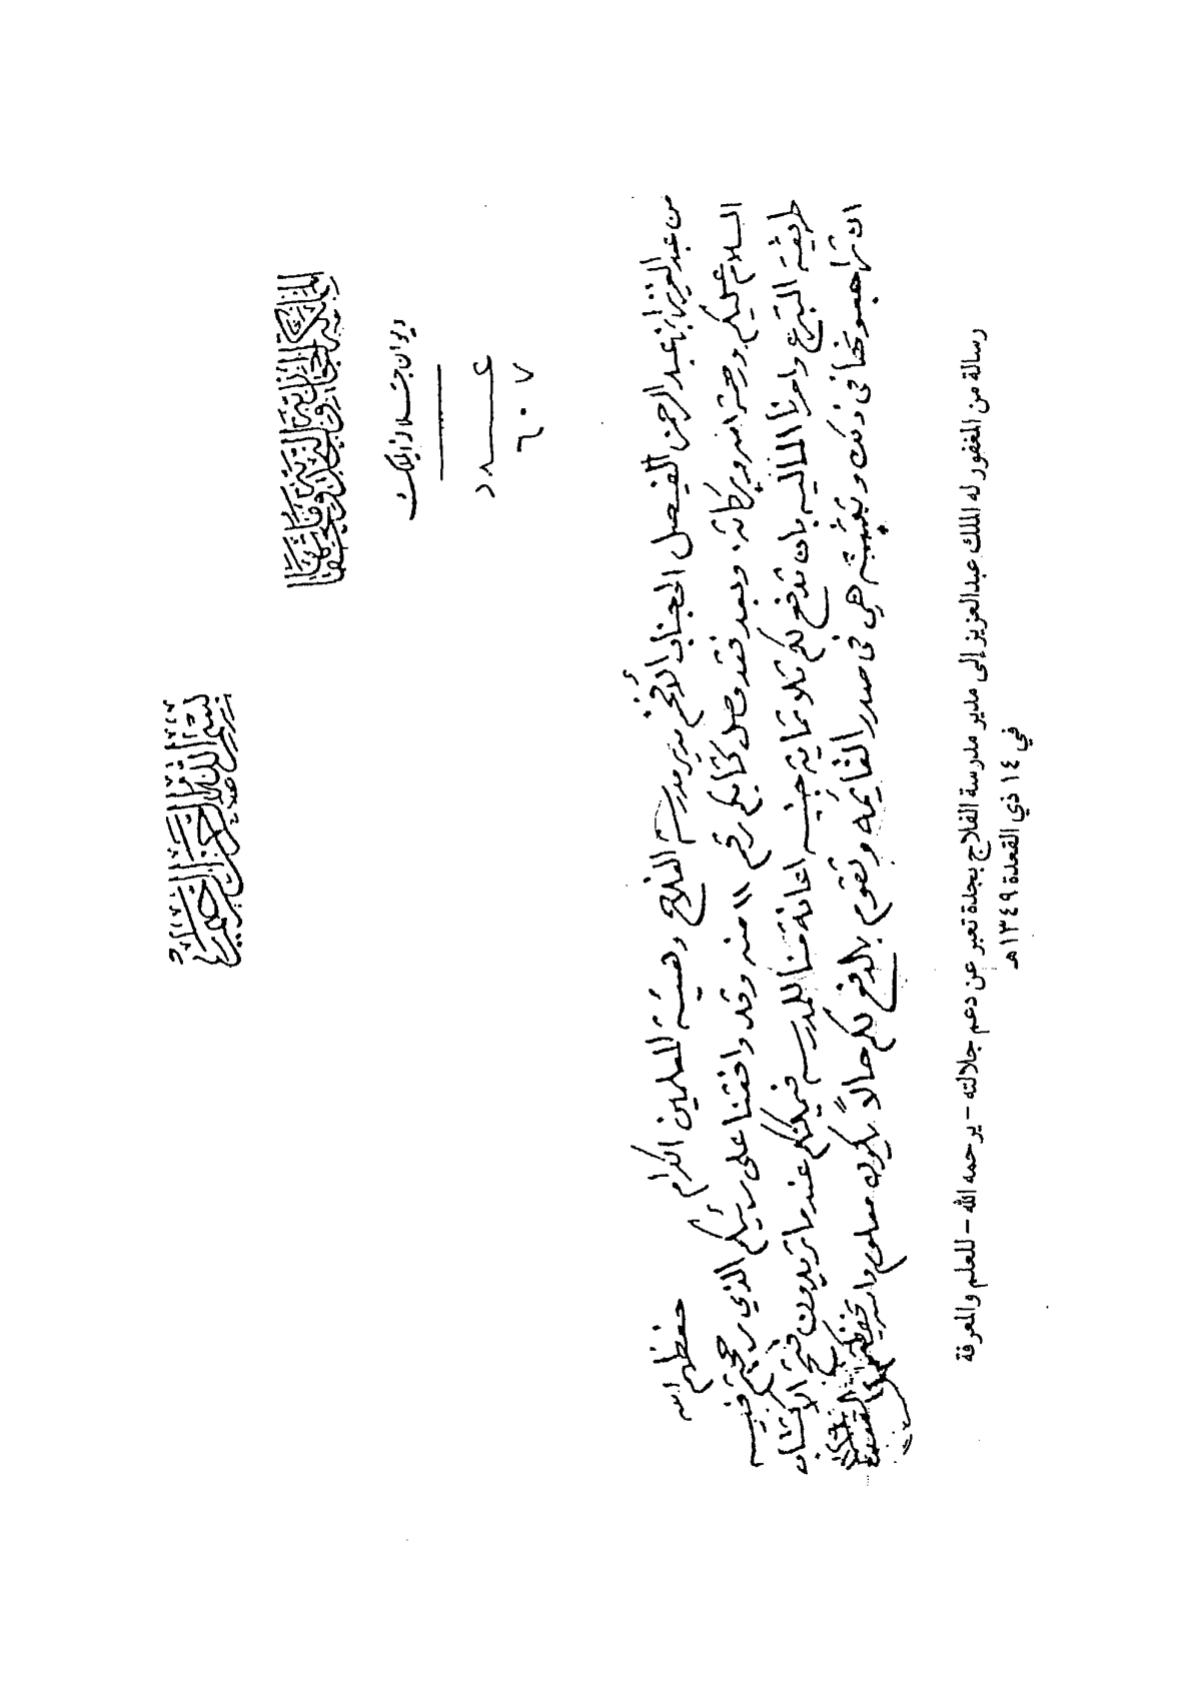 بسم الله الرحمن الرحيم
المملكة الحجازية النجدية وملحقاتها
ديوان جلالة الملك
عدد
٦٠٧
من عبد العزيز بن عبد الرحمن الفيصل الى جناب الأفخم مدير مدرسة الفلاح وهيئة المعلمين الكرام حفظهم الله
السلام عليكم ورحمة الله وبركاته. وبعد فقد وصل كتابكم رقم ١١ منه وقد وافقنا على رأيكم الذي رجحتم فيه
طريقة التبرع وامرنا الماليه بان تدفع لكم ثلاثماية جنيه اعانة منا للمدرسه فيمكنكم عندما تريدون فتح الاكتتاب
ان تراجعونها في ذلك وتثبته هي في صدر القايمه وتقوم بالدفع لكم حالاً ليكون معلوم والله يحفظكم
رسالة من المغفور له الملك عبدالعزيز إلى مدير مدرسة الفلاح بجدة تعبر عن دعم جلالته - يرحمه الله - للعلم والمعرفة
في ١٤ ذي القعدة ١٣٤٩هـ